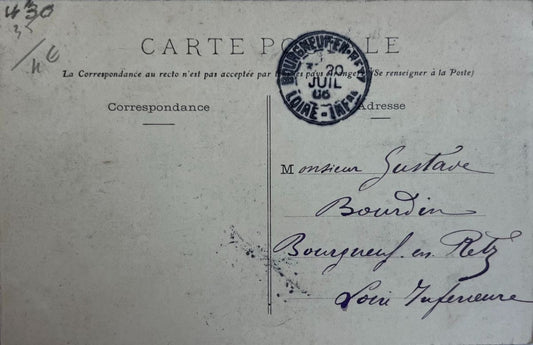 430
CARTE POSTALE
La Correspondance au recto n'est pas acceptée par tous les pays étrangers (Se renseigner à la Poste)
BOURGNEUF-EN-RETZ
20
JUIL
06
LOIRE-INFRE
Correspondance
Adresse
Monsieur Gustave
Bourdin
Bourgneuf en Retz
Loire Inferieure